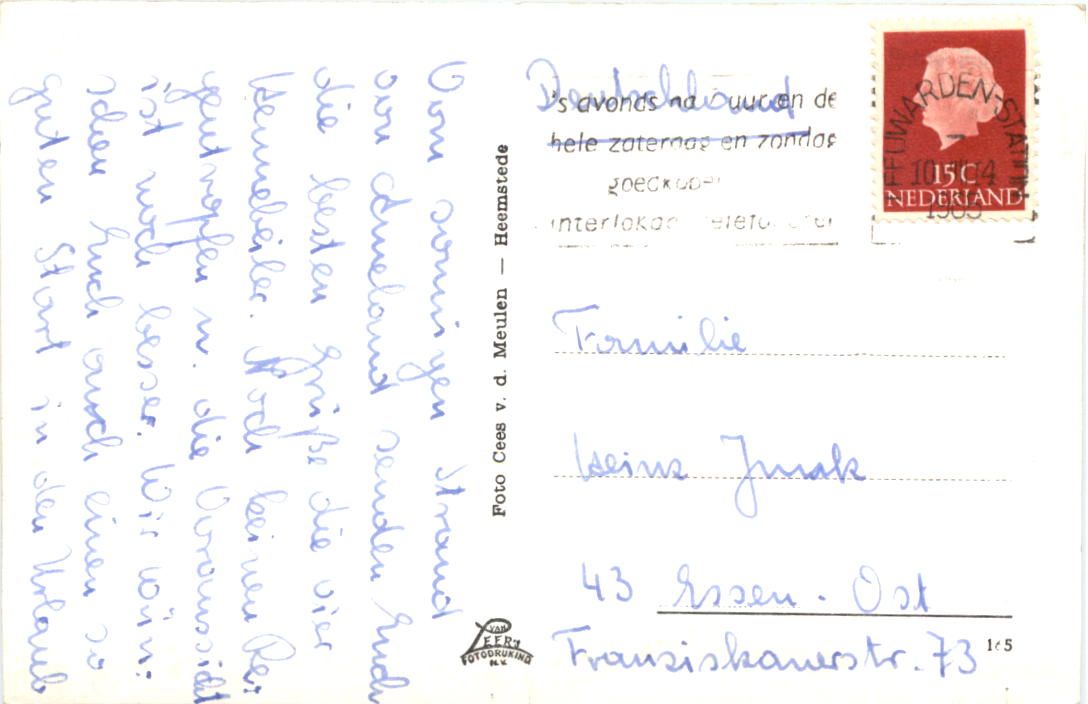 Vom sonnigen Strand
von Ameland senden Euch
die besten Grüße die vier
Hennebeiler. Noch keinen Re-
gentropfen u. die Voraussicht
ist noch besser. Wir wün-
schen Euch auch einen so
guten Start in den Urlaub
Foto Cees v. d. Meulen — Heemstede
VAN
LEER'S
FOTODRUKIND
N.V.
Deutschland
's avonds na uur en de
hele zaterdag en zondag
goedkoper
interlokaal telefoneren
LEEUWARDEN-STATION
1965
15 C
NEDERLAND
Familie
Heinz Junak
43 Essen-Ost
Franziskanerstr. 73
165